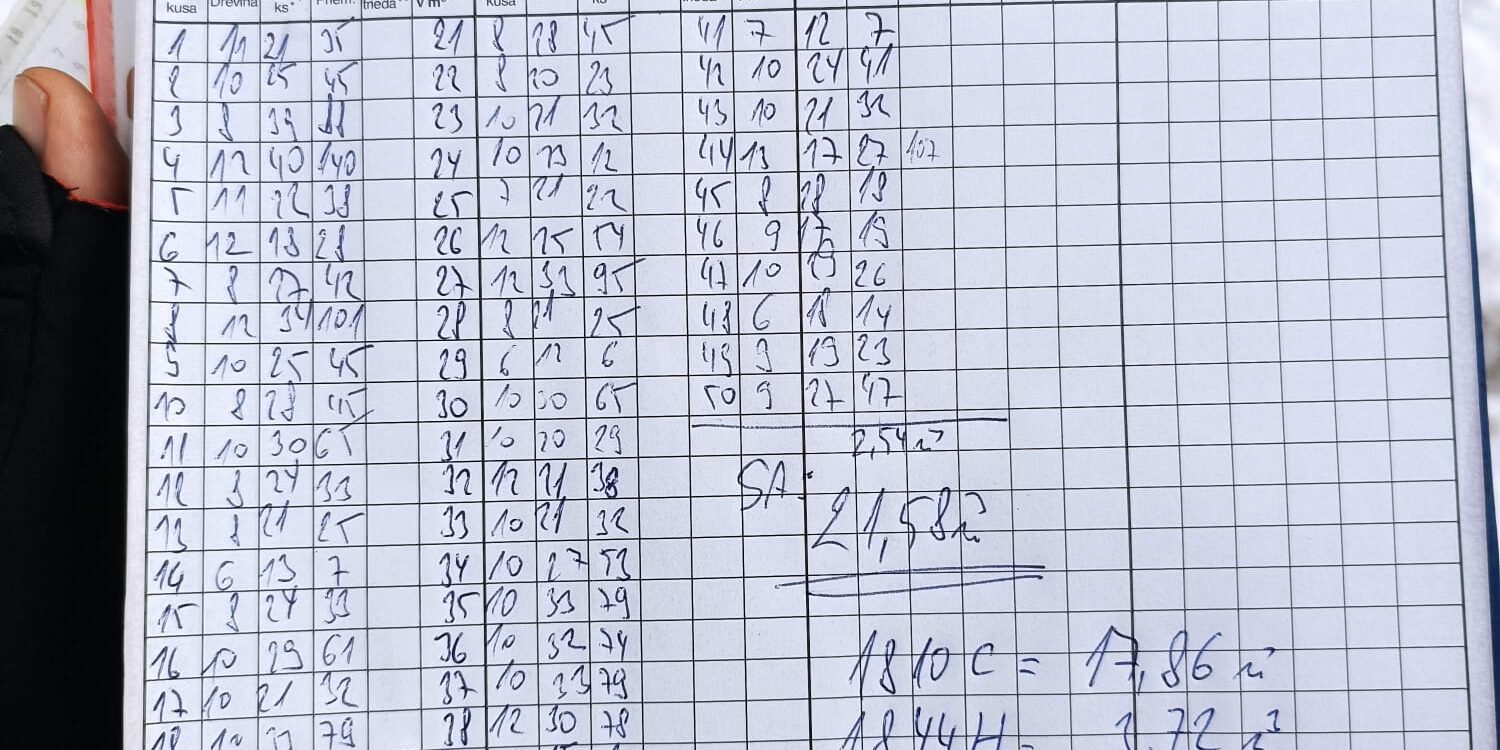 kusa Drevina ks* Priem. trieda** V m³ kusa ks
1 11 21 35 21 8 28 45 41 7 12 7
2 10 25 45 22 8 20 23 42 10 24 41
3 8 39 88 23 10 21 32 43 10 21 32
4 12 40 140 24 10 13 12 44 13 17 27 107
5 11 22 38 25 7 21 22 45 8 18 18
6 12 18 28 26 12 25 54 46 9 17 19
7 8 27 42 27 12 33 95 47 10 19 26
8 12 34 101 28 8 21 25 48 6 18 14
9 10 25 45 29 6 12 6 49 9 19 23
10 8 28 45 30 10 30 65 50 9 27 47
11 10 30 65 31 10 20 29 2,54 m³
12 8 24 33 32 12 21 38 SA:
13 8 21 25 33 10 21 32 21,58 m³
14 6 13 7 34 10 27 53
15 8 24 33 35 10 33 79
16 10 29 61 36 10 32 74 1810 C = 17,86 m³
17 10 21 32 37 10 33 79
18 10 33 79 38 12 30 78 1844 H = 3,72 m³